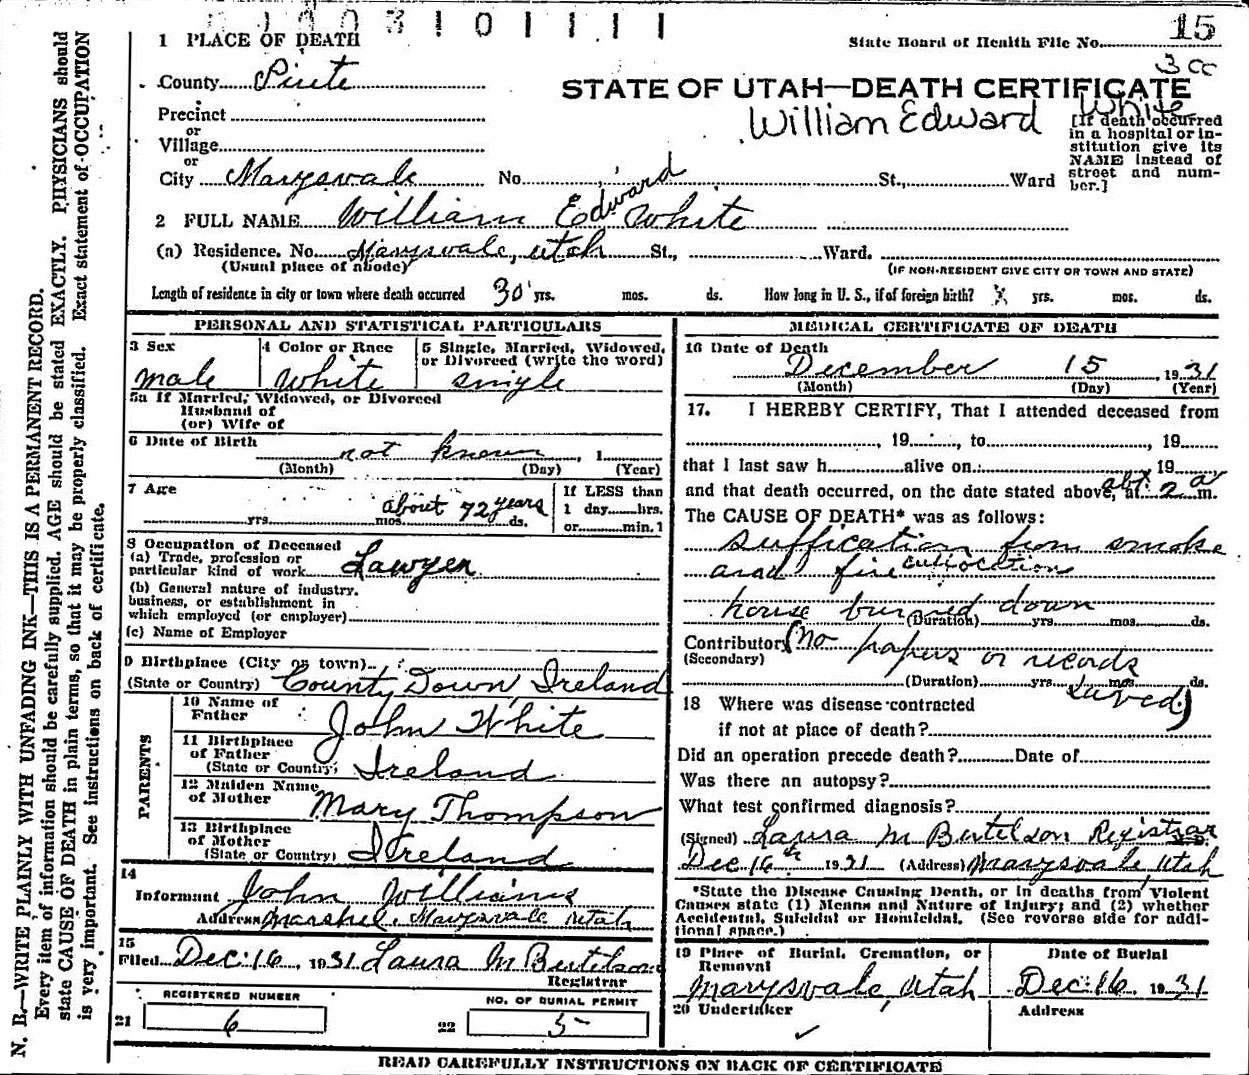 1 PLACE OF DEATH
State Board of Health File No. 15
3 cc
County Piute
STATE OF UTAH—DEATH CERTIFICATE
William Edward White
Precinct
or
Village
or
City Marysvale No. St., Ward
[If death occurred
in a hospital or in-
stitution give its
NAME instead of
street and num-
ber.]
2 FULL NAME William Edward White
(a) Residence. No. Marysvale, Utah St., Ward.
(Usual place of abode) (IF NON-RESIDENT GIVE CITY OR TOWN AND STATE)
Length of residence in city or town where death occurred 30 yrs. mos. ds. How long in U. S., if of foreign birth? X yrs. mos. ds.
PERSONAL AND STATISTICAL PARTICULARS
3 Sex
male
4 Color or Race
White
5 Single, Married, Widowed,
or Divorced (write the word)
single
5a If Married, Widowed, or Divorced
Husband of
(or) Wife of
6 Date of Birth not known, 1
(Month) (Day) (Year)
7 Age about 72 years
yrs. mos. ds.
If LESS than
1 day hrs.
or min.
8 Occupation of Deceased
(a) Trade, profession or
particular kind of work Lawyer
(b) General nature of industry,
business, or establishment in
which employed (or employer)
(c) Name of Employer
9 Birthplace (City or town)
(State or Country) County Down, Ireland
PARENTS
10 Name of
Father John White
11 Birthplace
of Father
(State or Country) Ireland
12 Maiden Name
of Mother Mary Thompson
13 Birthplace
of Mother
(State or Country) Ireland
14
Informant John Williams
Address Marshel, Marysvale Utah
15
Filed Dec. 16, 1931 Laura M Bertelson
Registrar
REGISTERED NUMBER
21 6
NO. OF BURIAL PERMIT
22 5
MEDICAL CERTIFICATE OF DEATH
16 Date of Death
December 15, 1931
(Month) (Day) (Year)
17. I HEREBY CERTIFY, That I attended deceased from
, 19 , to , 19
that I last saw h alive on , 19
and that death occurred, on the date stated above, at abt 2 a m.
The CAUSE OF DEATH* was as follows:
suffication from smoke
and fire suffocation
house burned down
(Duration) yrs. mos. ds.
Contributory (No papers or records
(Secondary)
(Duration) yrs. mos. ds.
saved)
18 Where was disease contracted
if not at place of death?
Did an operation precede death? Date of
Was there an autopsy?
What test confirmed diagnosis?
(Signed) Laura M Bertelson Registrar
Dec 16th 1931 (Address) Marysvale Utah
*State the Disease Causing Death, or in deaths from Violent
Causes state (1) Means and Nature of Injury; and (2) whether
Accidental, Suicidal or Homicidal. (See reverse side for addi-
tional space.)
19 Place of Burial, Cremation, or
Removal
Marysvale, Utah
Date of Burial
Dec. 16, 1931
20 Undertaker
Address
READ CAREFULLY INSTRUCTIONS ON BACK OF CERTIFICATE
N. B.—WRITE PLAINLY WITH UNFADING INK—THIS IS A PERMANENT RECORD.
Every item of information should be carefully supplied. AGE should be stated EXACTLY. PHYSICIANS should
state CAUSE OF DEATH in plain terms, so that it may be properly classified. Exact statement of OCCUPATION
is very important. See instructions on back of certificate.